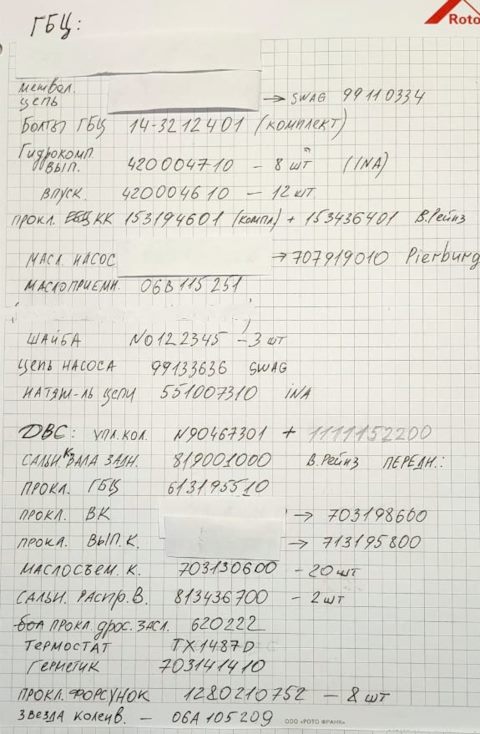 Roto
ГБЦ:
межвал.
цепь → SWAG 99110334
Болты ГБЦ 14-3212401 (комплект)
Гидрокомп.
вып. 420004710 – 8 шт (INA)
впуск. 420004610 – 12 шт.
прокл. КК 153194601 (компл) + 153436401 В.Рейнз
масл. насос → 707919010 Pierburg
маслоприемн. 06B 115 251
шайба N0122345 – 3 шт
цепь насоса 99133636 SWAG
натяж-ль цепи 551007310 INA
ДВС: упл. кол. N90467301 + 1111152200
сальн. К. вала задн. 819001000 В.Рейнз передн.:
прокл. ГБЦ 613195510
прокл. ВК → 703198600
прокл. вып. к. → 713195800
маслосъем. к. 703130600 – 20 шт
сальн. распр. в. 813436700 – 2 шт
прокл. дрос. засл. 620222
термостат TX1487D
герметик 703141410
прокл. форсунок 1280210752 – 8 шт
звезда коленв. – 06A 105 209
ООО «РОТО ФРАНК»